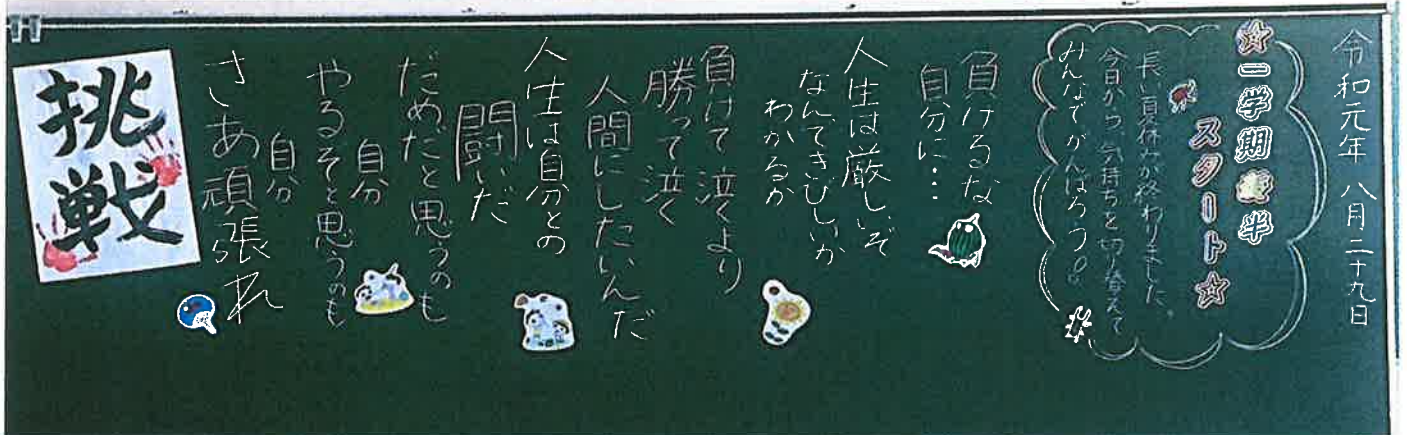 令和元年 八月二十九日
☆一学期後半
スタート☆
長い夏休みが終わりました。
今日から、気持ちを切り替えて
みんなでがんばろう。
負けるな
自分に…
人生は厳しいぞ
なんてきびしいか
わかるか
負けて泣くより
勝って泣く
人間にしたいんだ
人生は自分との
闘いだ
だめだと思うのも
自分
やるぞと思うのも
自分
さあ頑張れ
挑戦